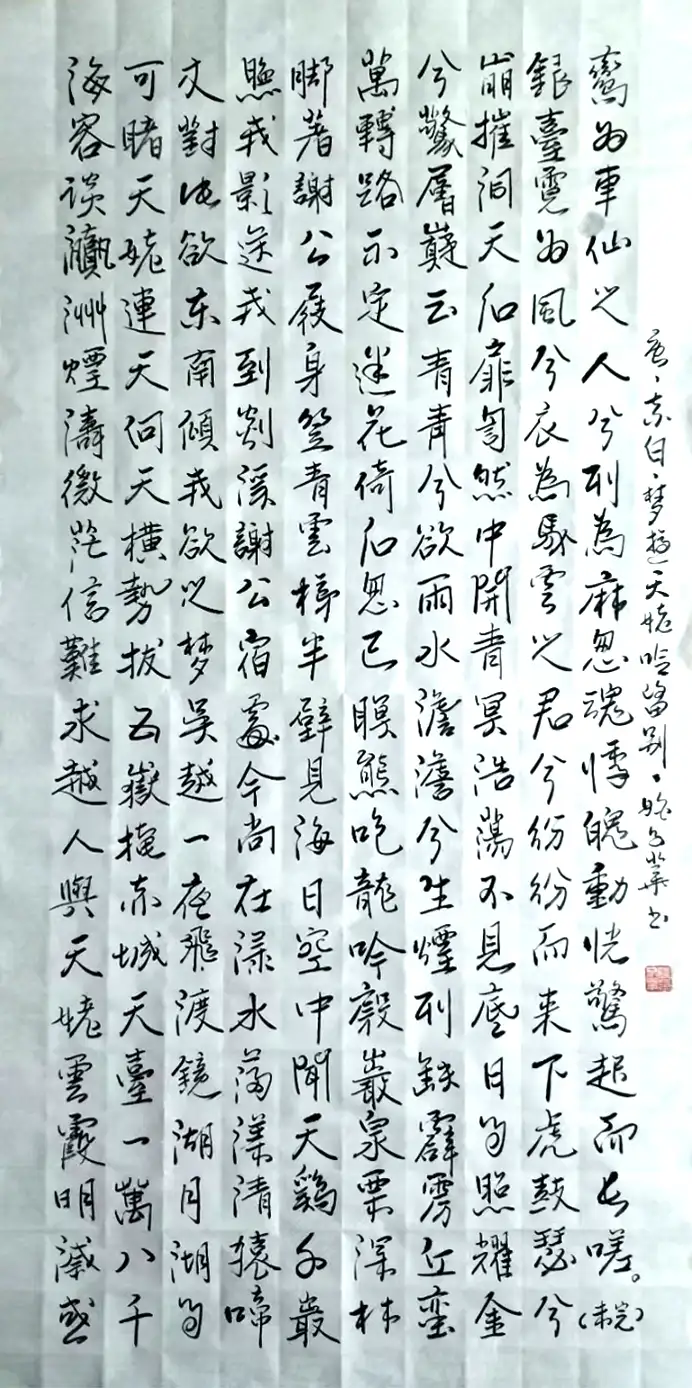 海客谈瀛洲煙濤微茫信難求越人與天姥雲霞明滅或
可睹天姥連天向天橫勢拔五嶽掩赤城天臺一萬八千
丈對此欲东南傾我欲之梦吴越一夜飛渡鏡湖月湖月
照我影送我到剡溪謝公宿處今尚在渌水蕩漾清猿啼
脚著謝公屐身登青雲梯半壁見海日空中聞天鷄千巖
萬轉路不定迷花倚石忽已暝熊咆龍吟殷巖泉栗深林
兮驚層巔云青青兮欲雨水澹澹兮生煙列缺霹靂丘巒
崩摧洞天石扉訇然中開青冥浩蕩不見底日月照耀金
銀臺霓为風兮衣為馬雲之君兮纷纷而来下虎鼓瑟兮
鸞为車仙之人兮列為麻忽魂悸魄動恍驚起而長嗟。(未完)
唐、李白、梦遊天姥吟留别、华书